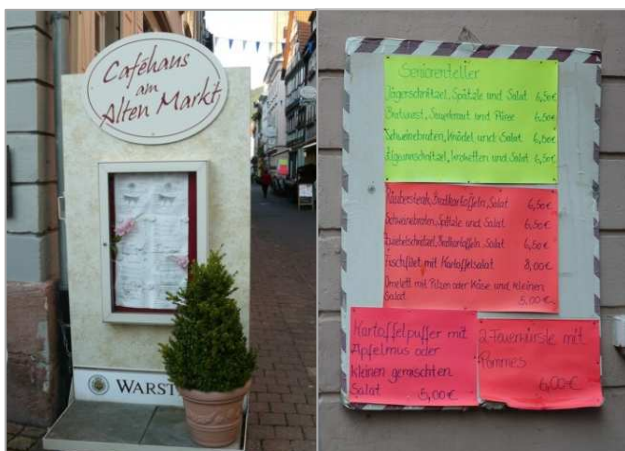 Caféhaus
am
Alten Markt
WARST
Seniorenteller
Jägerschnitzel, Spätzle und Salat 6,50€
Bratwurst, Sauerkraut und Püree 6,50€
Schweinebraten, Knödel und Salat 6,50€
Zigeunerschnitzel, Kroketten und Salat 6,50€
Bratkartoffeln, Salat 6,50€
Schweinebraten, Spätzle und Salat 6,50€
Bratkartoffeln, Salat 6,50€
Fischfilet mit Kartoffelsalat 8,00€
Omelett mit Pilzen oder Käse und kleinen
Salat 5,00€
Kartoffelpuffer mit
Apfelmus oder
kleinen gemischten
Salat 5,00€
2 Feuerwürstle mit
Pommes
6,00€